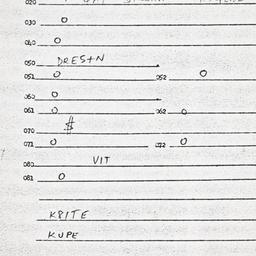 020
030 0
040 0
050 DRESTN
051 0 052 0
060 0
061 0 062 0
070 $
071 0 072 0
080 VIT
081 0
KRITE
KUPE